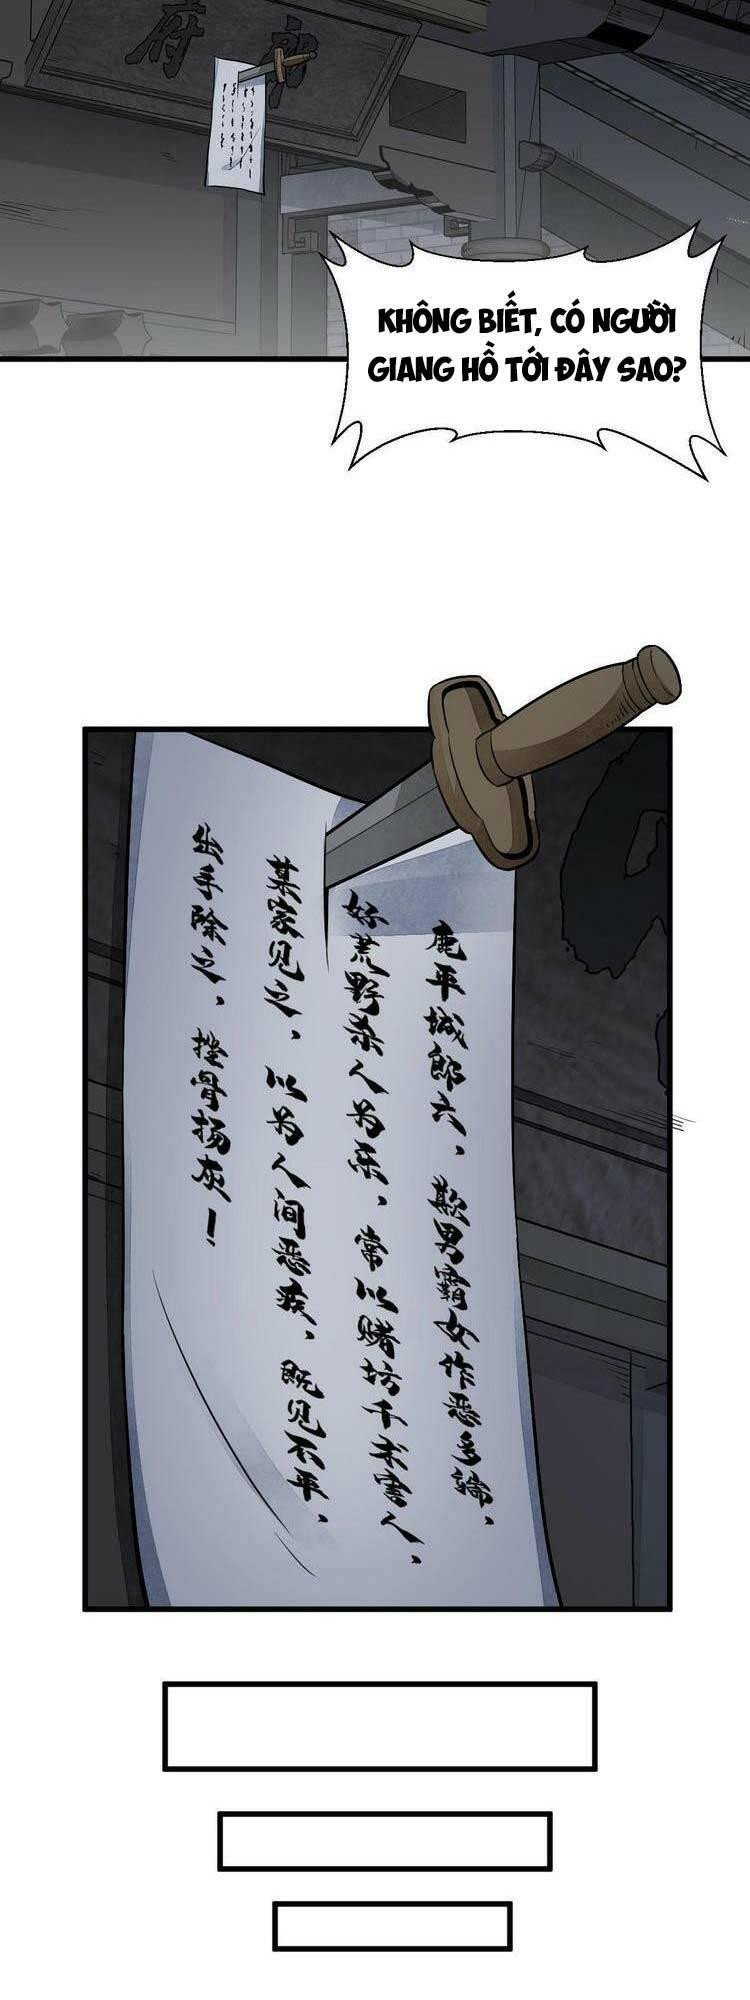 府郎
KHÔNG BIẾT, CÓ NGƯỜI
GIANG HỒ TỚI ĐÂY SAO?
鹿平城郎六，欺男霸女作恶多端，
好荒野杀人为乐，常以赌坊千术害人，
某家见之，以为人间恶疾，既见不平，
出手除之，挫骨扬灰！